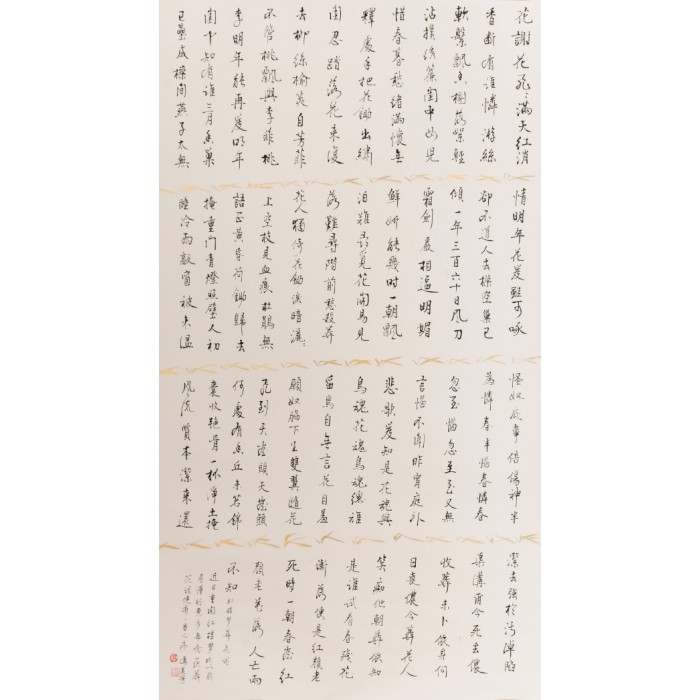 花謝花飛〻滿天紅消
香斷有誰憐游絲
軟繫飄香榭落絮輕
沾撲繡簾閨中女兒
惜春暮愁緒滿懷無
釋處手把花鋤出繡
閨忍踏落花來復
去柳絲榆莢自芳菲
不管桃飄與李飛桃
李明年能再發明年
閨中知有誰三月香巢
已壘成樑間燕子太無
情明年花發雖可啄
卻不道人去樑空巢已
傾一年三百六十日風刀
霜劍嚴相逼明媚
鮮妍能幾時一朝飄
泊難尋覓花開易見
落難尋階前愁殺葬
花人獨倚花鋤淚暗灑〻
上空枝見血痕杜鵑無
語正黃昏荷鋤歸去
掩重門青燈照壁人初
睡冷雨敲窗被未溫
怪奴底事倍傷神半
為憐春半惱春憐春
忽至惱忽至又無
言不聞昨宵庭外
悲歌發知是花魂與
鳥魂花魂鳥魂總難
留鳥自無言花自羞
願奴脇下生雙翼隨花
飛到天盡頭天盡頭
何處有香丘未若錦
囊收艷骨一抔淨土掩
風流質本潔來還
潔去強於污淖陷
渠溝爾今死去儂
收葬未卜儂身何
日喪儂今葬花人
笑癡他年葬儂知
是誰試看春殘花
漸落便是紅顏老
死時一朝春盡紅
顏老花落人亡兩
不知紅樓夢葬花詞
近日重閱紅樓夢